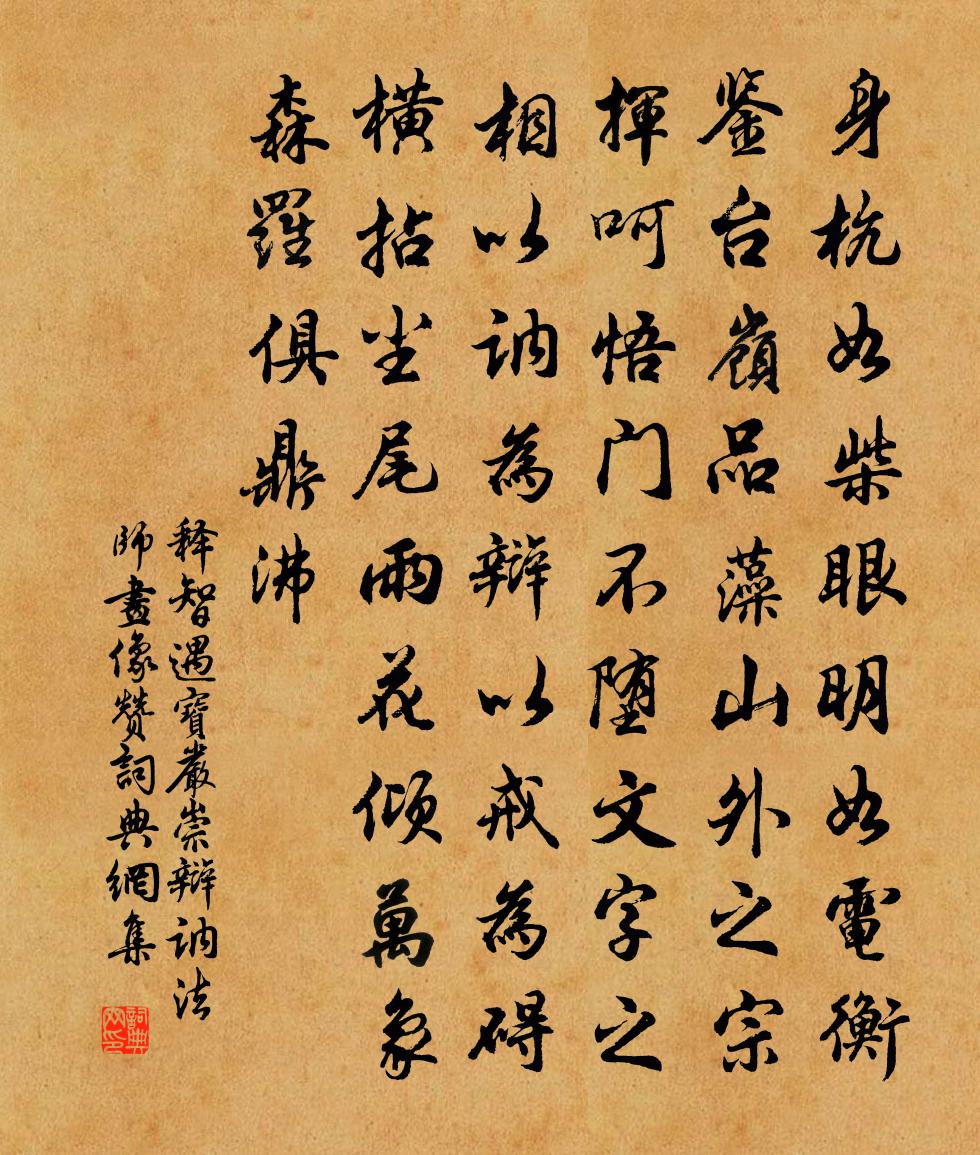 身杭如柴眼明如電衡
鉴台嶺品藻山外之宗
揮呵悟门不堕文字之
相以讷為辯以戒為碍
橫拈坐尾雨花倾萬象
森羅俱鼎沸
释智遇寶嚴崇辯讷法
師畫像赞詞典網集
詞典网印